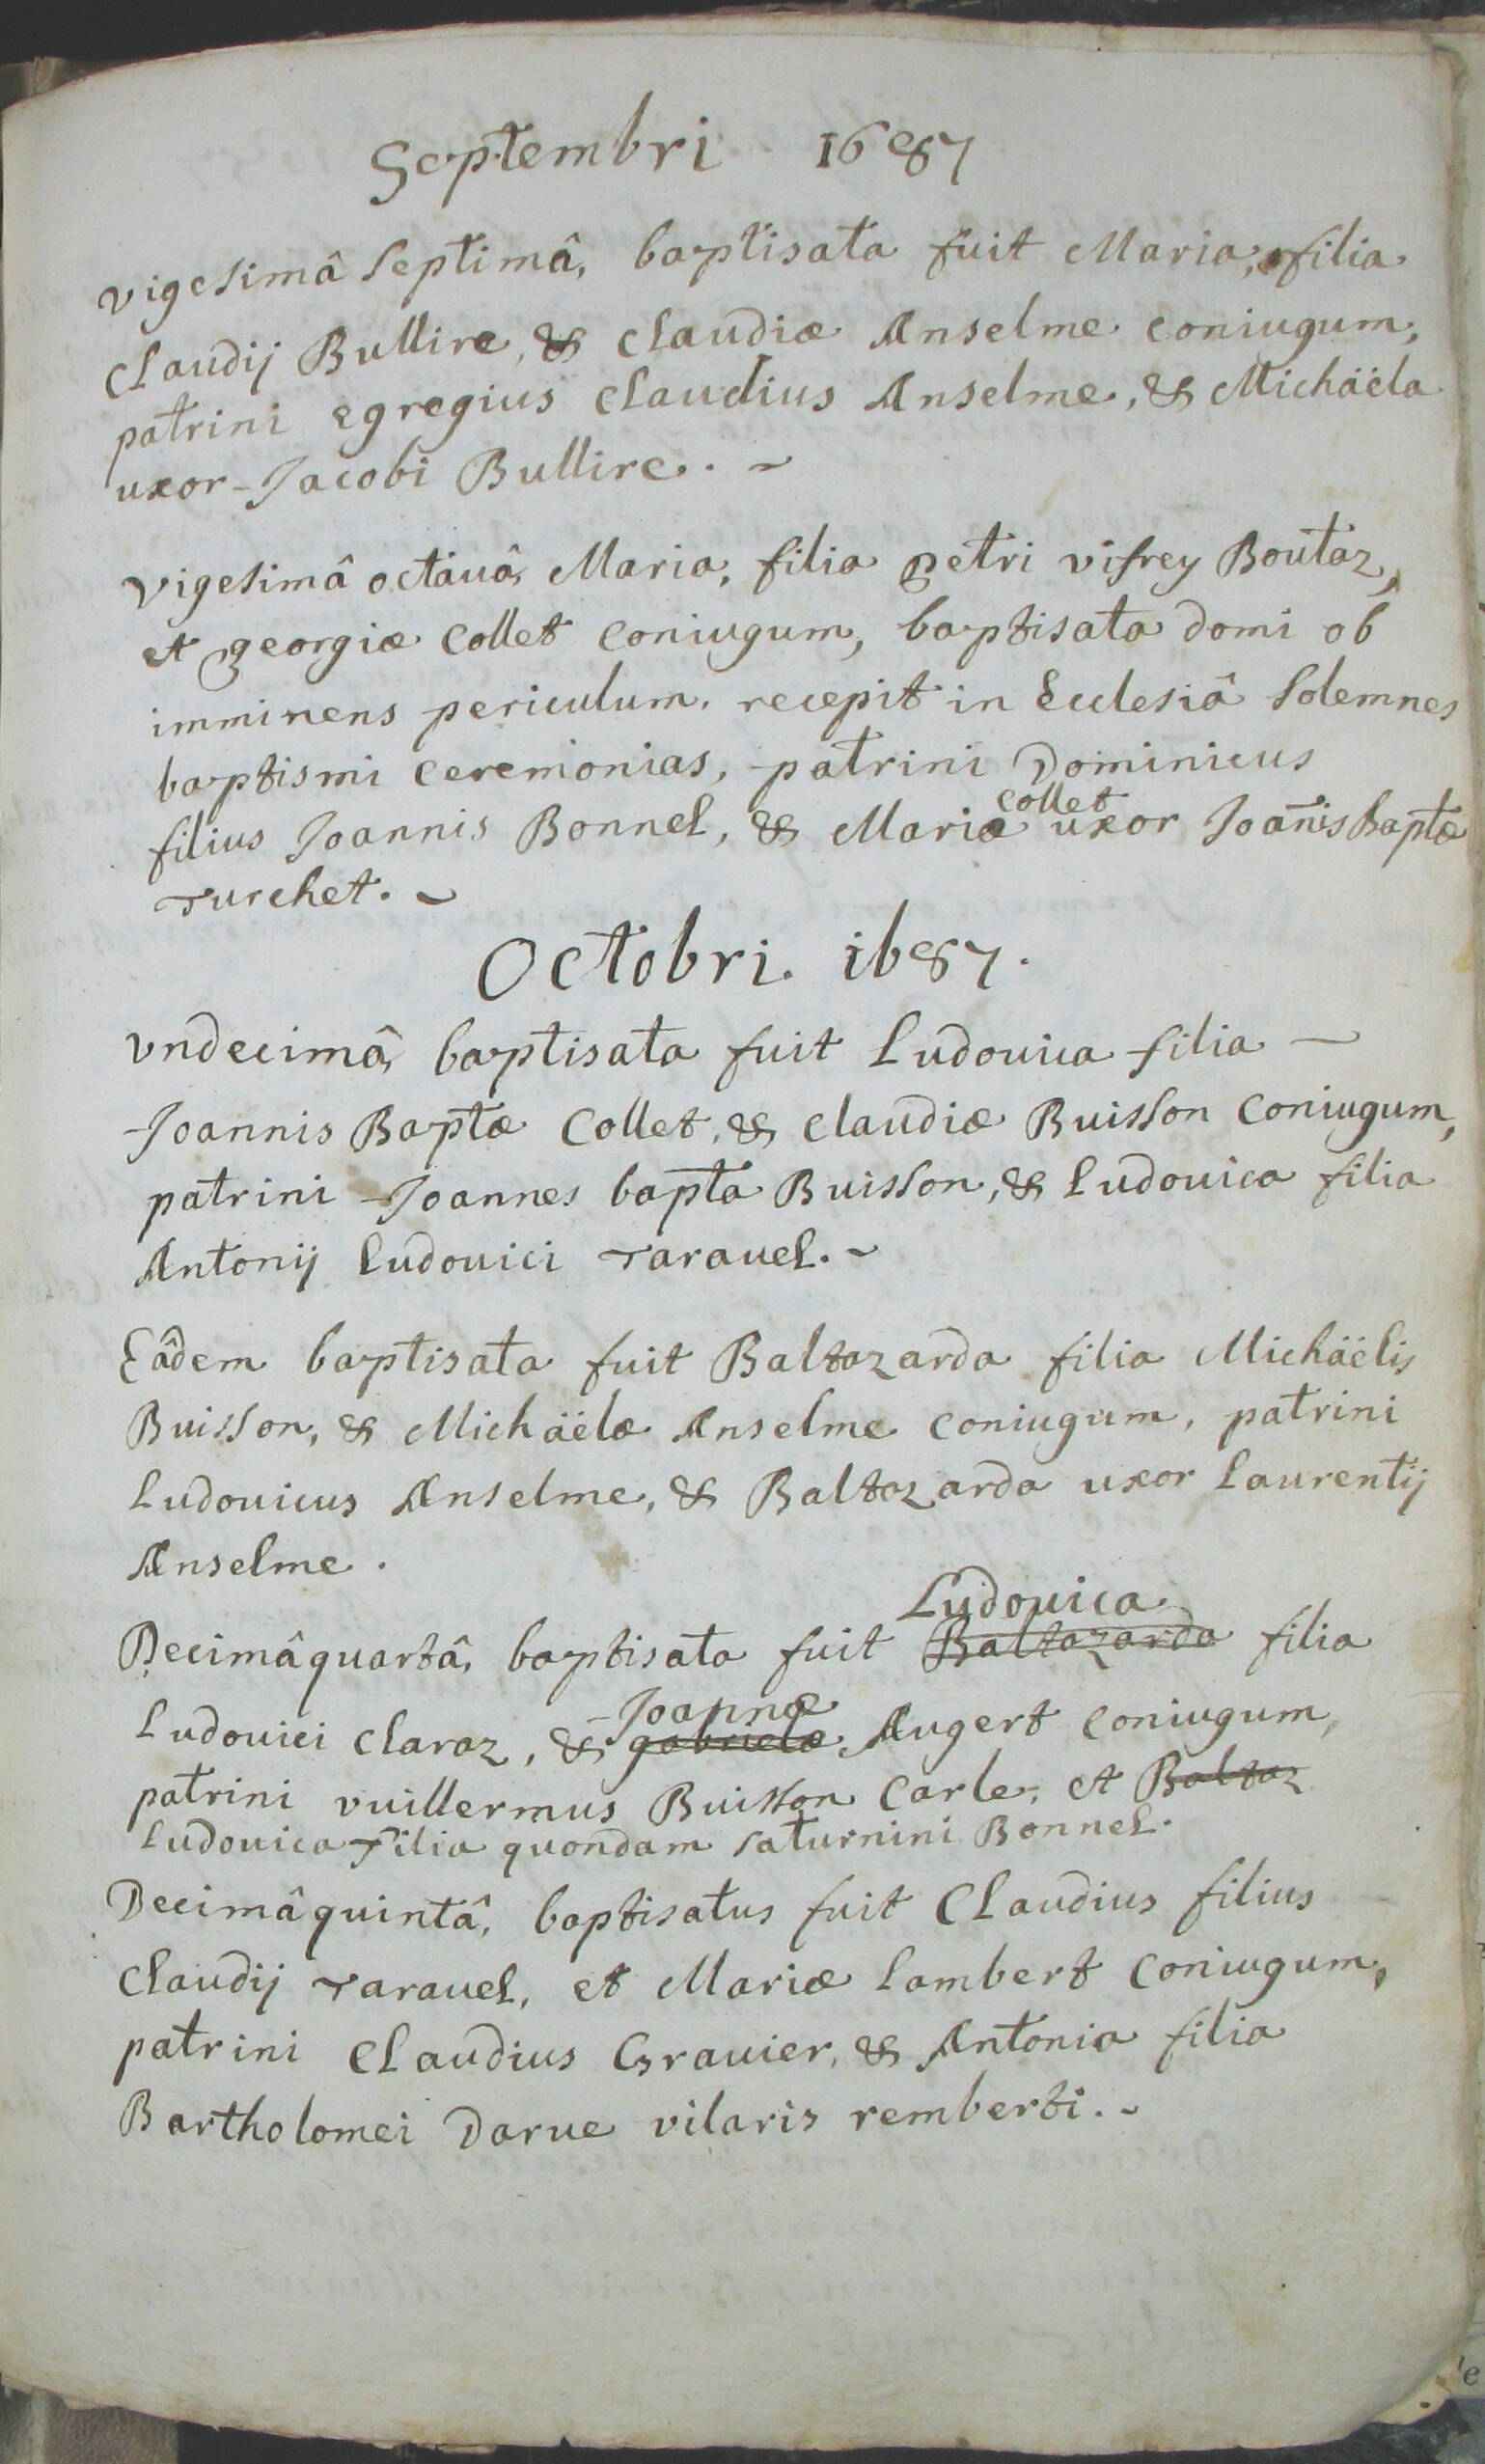 Septembri 1687
vigesimâ septimâ, baptisata fuit Maria, filia
Claudij Bullire, & Claudiæ Anselme coniugum,
patrini egregius Claudius Anselme, & Michäela
uxor Jacobi Bullire. ~
vigesimâ octauâ, Maria, filia petri vifrey Boutaz,
et georgiæ Collet coniugum, baptisata domi ob
imminens periculum. recepit in Ecclesiâ solemnes
baptismi ceremonias, patrini Dominicus
collet
filius Joannis Bonnel, & Maria uxor Joañis Baptæ
Turchet. ~
Octobri. 1687.
vndecimâ, baptisata fuit Ludouica filia ~
Joannis Baptæ Collet, & Claudiæ Buisson Coniugum,
patrini Joannes bapta Buisson, & Ludouica filia
Antonij Ludouici Tarauel. ~
Eâdem baptisata fuit Baltazarda filia Michäelis
Buisson, & Michäelæ Anselme coniugum, patrini
Ludouicus Anselme, & Baltazarda uxor Laurentij
Anselme.
Ludouica
Decimâquartâ, baptisata fuit Baltazarda filia
Joannæ
Ludouici Claraz, & gabrielæ Augert coniugum,
patrini vuillermus Buisson Carle, et Baltaz
Ludouica filia quondam saturnini Bonnel.
Decimâquintâ, baptisatus fuit Claudius filius
Claudij Tarauel, et Mariæ Lambert Coniugum,
patrini Claudius Grauier, & Antonia filia
Bartholomei Darue vilaris remberti. ~